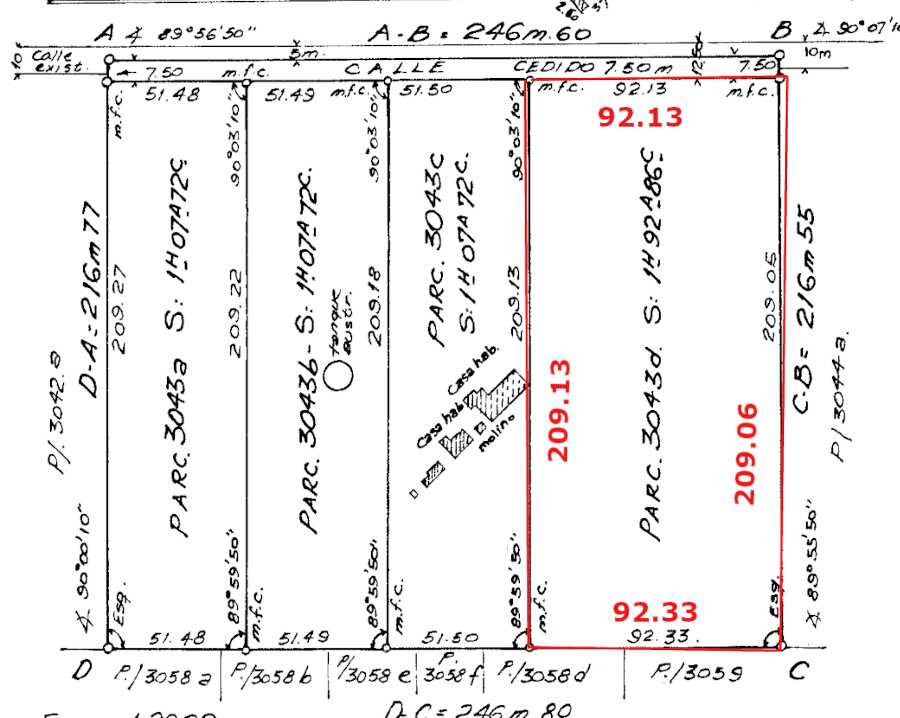 2.60
A ∡ 89°56'50"
A-B = 246m.60
B ∡ 90°07'10
10
Calle
exist.
5m.
12.50
10m
7.50
m.f.c.
CALLE
CEDIDO 7.50 m
7.50
51.48
51.49
m.f.c.
51.50
m.f.c.
92.13
m.f.c.
92.13
m.f.c.
90°03'10"
90°03'10"
90°03'10"
D-A = 216m77
209.27
PARC. 3043a S: 1H07A72C
209.22
PARC. 3043b - S: 1H07A72C.
tanque
austr.
209.18
PARC. 3043c
S: 1H07A72C.
209.13
209.13
PARC. 3043d. S: 1H92A86C
209.05
209.06
C-B = 216m55
P/. 3042.a
P/3044a.
Casa hab.
Casa hab
molino
∡ 90°00'10"
Esq.
89°59'50"
m.f.c.
89°59'50"
m.f.c.
89°59'50"
m.f.c.
Esq.
∡ 89°55'50"
92.33
51.48
51.49
51.50
92.33.
D
P./3058a
P/3058b
P/3058e
P.
3058f
P./3058d
P./3059
C
D-C = 246m.80